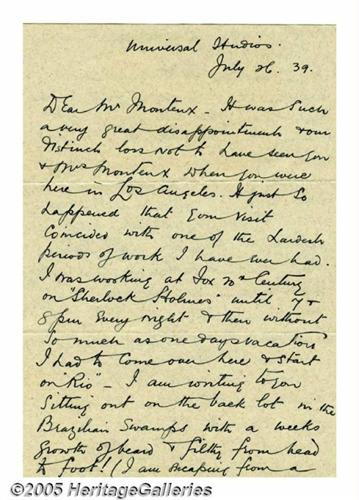 Universal Studios.
July 26. 39.
Dear Mr Monteux - It was such
a very great disappointment & our
distinct loss not to have seen you
& Mrs Monteux when you were
here in Los Angeles. It just so
happened that your visit
coincided with one of the hardest
periods of work I have ever had.
I was working at Fox 20th Century
on "Sherlock Holmes" until 7 &
8 pm every night & then without
so much as one days vacation
I had to come over here & start
on "Rio" - I am writing to you
sitting out on the back lot in the
Brazilian Swamps with a weeks
growth of beard & filthy from head
to foot! (I am escaping from a
©2005 HeritageGalleries